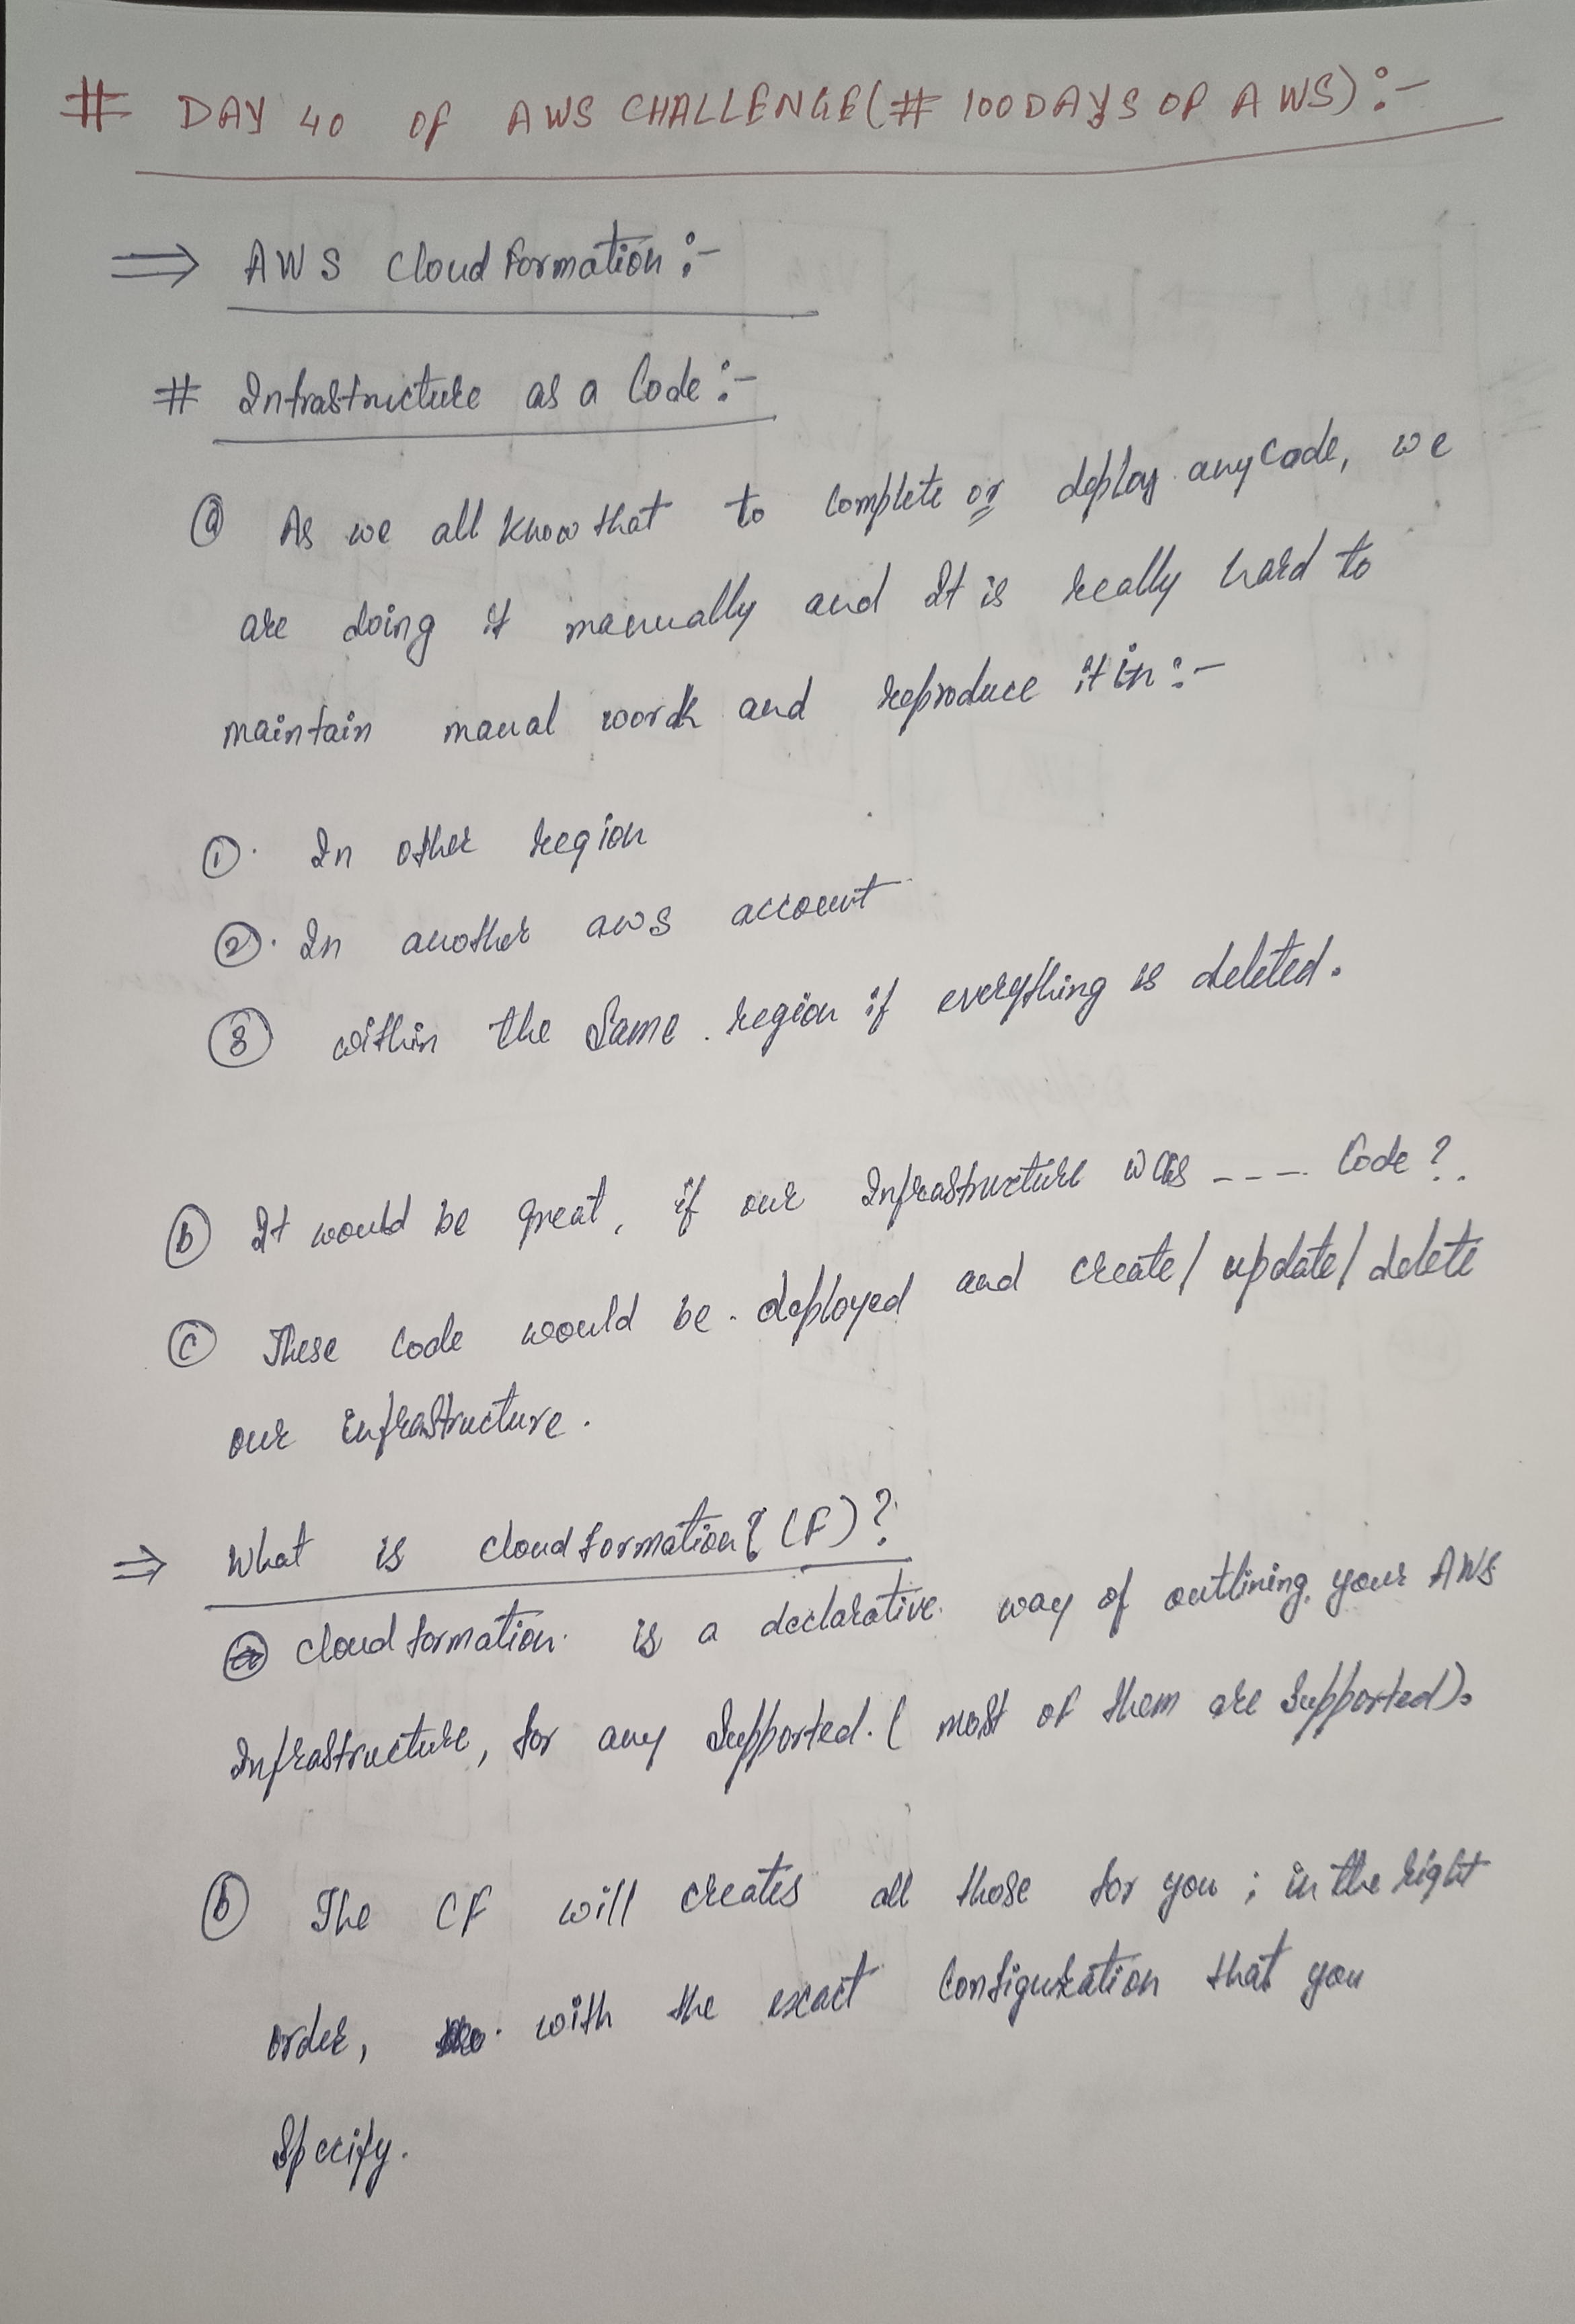 # DAY 40 OF AWS CHALLENGE(# 100DAYS OF AWS):-
⇒ AWS Cloud Formation:-
# Infrastructure as a Code:-
ⓐ As we all know that to complete or deploy any code, we
are doing it manually and It is really hard to
maintain manual work and reproduce it in:-
①. In other region
②. In another aws account
③ within the same region if everything is deleted.
ⓑ It would be great, if our Infrastructure was ---- Code?
ⓒ These code would be deployed and create/update/delete
our infrastructure.
⇒ What is cloud formation? (CF)?
ⓐ cloud formation is a declarative way of outlining your AWS
Infrastructure, for any supported. (most of them are supported).
ⓑ The CF will creates all those for you; in the right
order, with the exact configuration that you
specify.